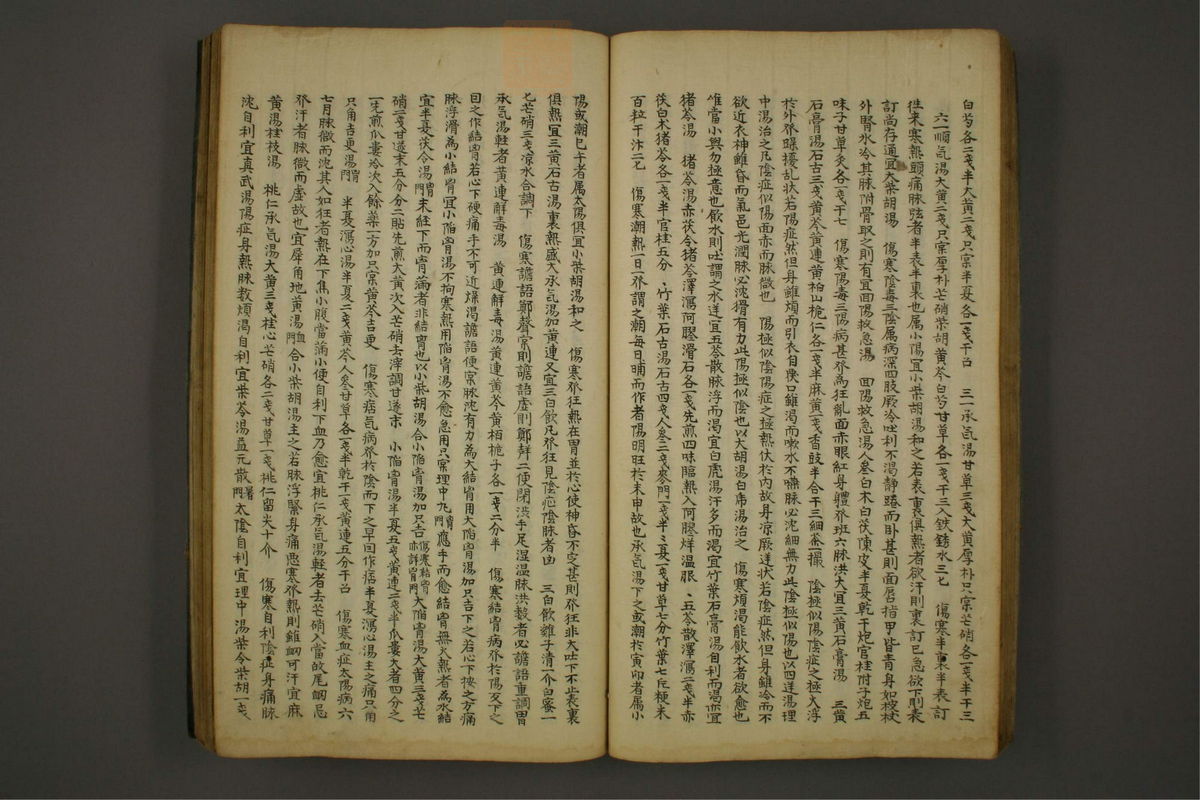 白芍各二戔半大黃二戔只宲半夏各一戔干召 三一承气湯甘草三戔大黃厚朴只宲芒硝各一戔半干三
六一順气湯大黃二戔只宲厚朴芒硝柴胡黃芩白芍甘草各一戔干三入鉄銹水三匕 傷寒半裏半表訂
徃来寒熱頭痛脉弦者半表半裏也属小陽冝小柴胡湯和之若表裏俱熱者欲汗則裏訂已急欲下則表
訂尚存通宜大柴胡湯 傷寒陰毒三陰属病深四肢厥冷吐利不渴静踡而卧甚則面唇指甲皆青身如被杖
外腎氷冷其脉附骨取之則有宜囬陽救急湯 囬陽救急湯人參白木白茯陳皮半夏乾干炮官桂附子炮五
味子甘草灸各一戔干七 傷寒陽毒三陽病甚発為狂亂面赤眼紅身軆発班六脉洪大宜三黃石膏湯 三黃
石膏湯石古三戔黃芩黃連黃柏山梔仁各一戔半麻黃一戔香豉半合干三細茶一撮 陰極似陽陰症之極大浮
於外発躁擾乱状若陽症然但身雖煩而引衣自
中湯治之凡陰症似陽面赤而脉微也 陽極似陰陽症之極熱伏於内故身凉厥逆状若陰症然但身雖冷而不
欲近衣神雖昏而氣邑光潤脉必沈滑有力此陽極似陰也以大胡湯白帍湯治之 傷寒煩渴能飲水者欲愈也
惟當小與勿極意也飲水則吐謂之水逆冝五苓散脉浮而渴宜白虎湯汗多而渴宜竹葉石膏湯自利而渴亦宜
猪苓湯 猪苓湯赤茯令猪苓澤瀉何膠滑石各一戔先煎四味臨熱入何膠烊温服 、五苓散澤瀉二戔半赤
茯白木猪苓各一戔半官桂五分 、竹葉石古湯石古四戔人參二戔麥門一戔半〻夏一戔甘草七分竹葉七斥粳米
百粒干汁二匕 傷寒潮熱一日一発謂之潮每日晡而作者陽明旺於未申故也承气湯下之或潮於寅卯者属小
陽或潮巳午者属太陽俱宜小柴胡湯和之 傷寒発狂熱在胃並於心使神昏不㝎甚則発狂非大吐下不止表裏
俱熱冝三黃石古湯裏熱盛大承气湯加黃連又宜三白飲凡発狂見陰症陰脉者凶 三白飲雞子清一介白蜜一
匕芒硝三戔凉水合調下 傷寒譫語鄭聲宲則譫語虛則鄭聲二便閉渋手足湿温脉洪數者必譫語重調胃
承气湯軽者黃連觧毒湯 黃連觧毒湯黃連黃芩黃栢梔子各一戔二分半 傷寒結胷病発於陽反下之
囙之作結胷若心下硬痛手不可近燥渴譫語便宲脉沈有力為大結胷用大陷胷湯加只吉下之若心下按之方痛
脉浮滑為小結胷宜小陷胷湯不拘寒熱用陷胷湯不愈急用只宲理中丸胷門應手而愈結胷無大熱者為水結
宜半夏茯令湯胷門未経下而胷滿者非結胷也以小柴胡湯合小陷胷湯加只吉傷寒結胷亦詳胷門大陷胷湯大黃三戔芒
硝二戔甘遂末五分分二貼先煎大黃次入芒硝去滓調甘遂末 小陷胷湯半夏五戔黃連二戔半爪蔞大者四分之
一先煎爪蔞冷次入餘藥一方加只宲黃芩吉更 傷寒痞气病発於陰而下之早囙作痞半夏瀉心湯主之痛只角
只角吉更湯胃門 半夏瀉心湯半夏二戔黃芩人參甘草各一戔半乾干一戔黃連五分干召 傷寒血症太陽病六
七月脉微而沈其人如狂者熱在下焦小腹當滿小便自利下血乃愈宜桃仁承气湯軽者去芒硝入當故尾衂忌
発汗者脉微而虛故也宜犀角地黃湯血門合小柴胡湯主之若脉浮緊身痛悪寒発熱則雖衂可汗宜麻
黃湯桂枝湯 桃仁承气湯大黃三戔桂心芒硝各二戔甘草一戔桃仁留尖十介 傷寒自利陰虛身痛脉
沈自利宜真武湯陽症身熱脉数煩渴自利宜柴苓湯益元散暑門太陰自利冝理中湯柴令柴胡一戔